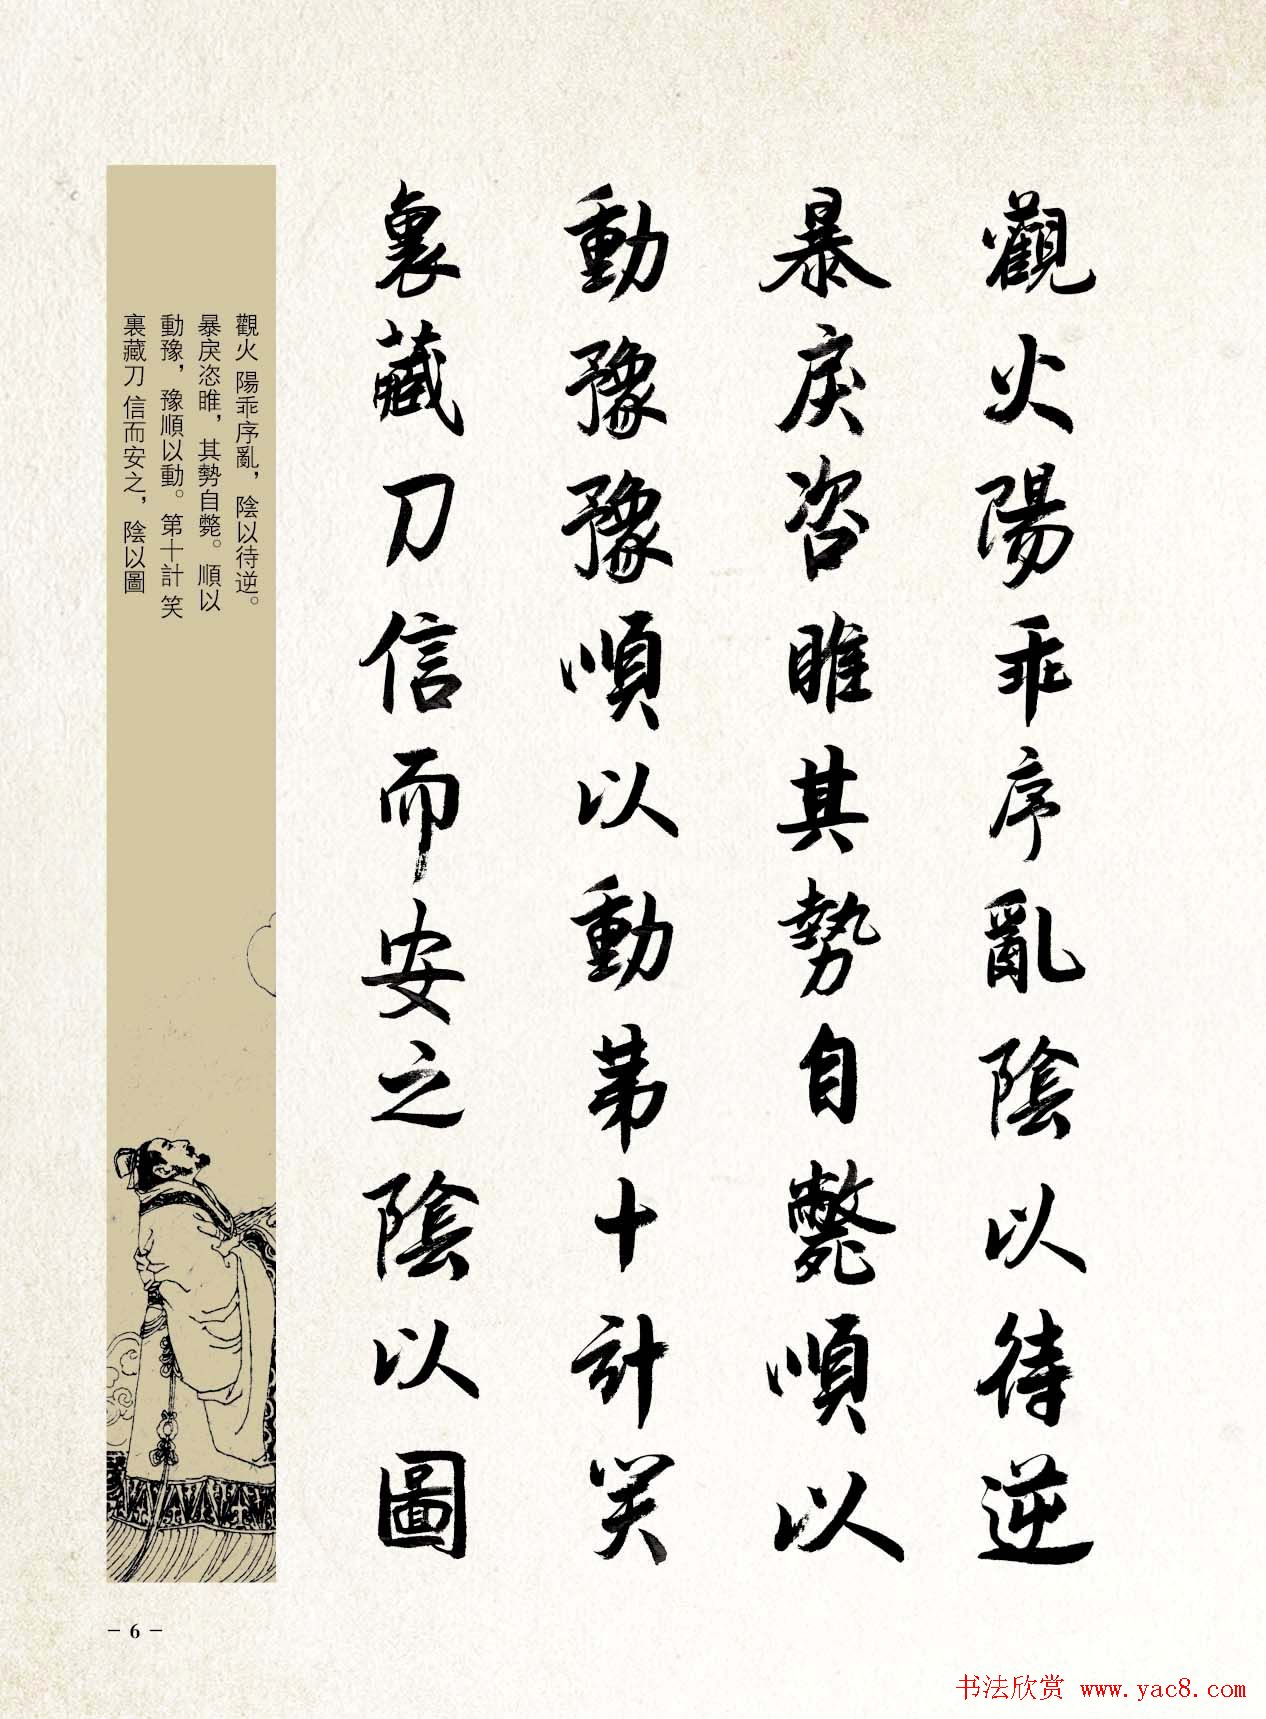 觀火陽乖序亂陰以待逆
暴戾恣睢其勢自斃順以
動豫豫順以動第十計笑
裏藏刀信而安之陰以圖
觀火 陽乖序亂，陰以待逆。
暴戾恣睢，其勢自斃。順以
動豫，豫順以動。第十計 笑
裏藏刀 信而安之，陰以圖
- 6 -
书法欣赏 www.yac8.com